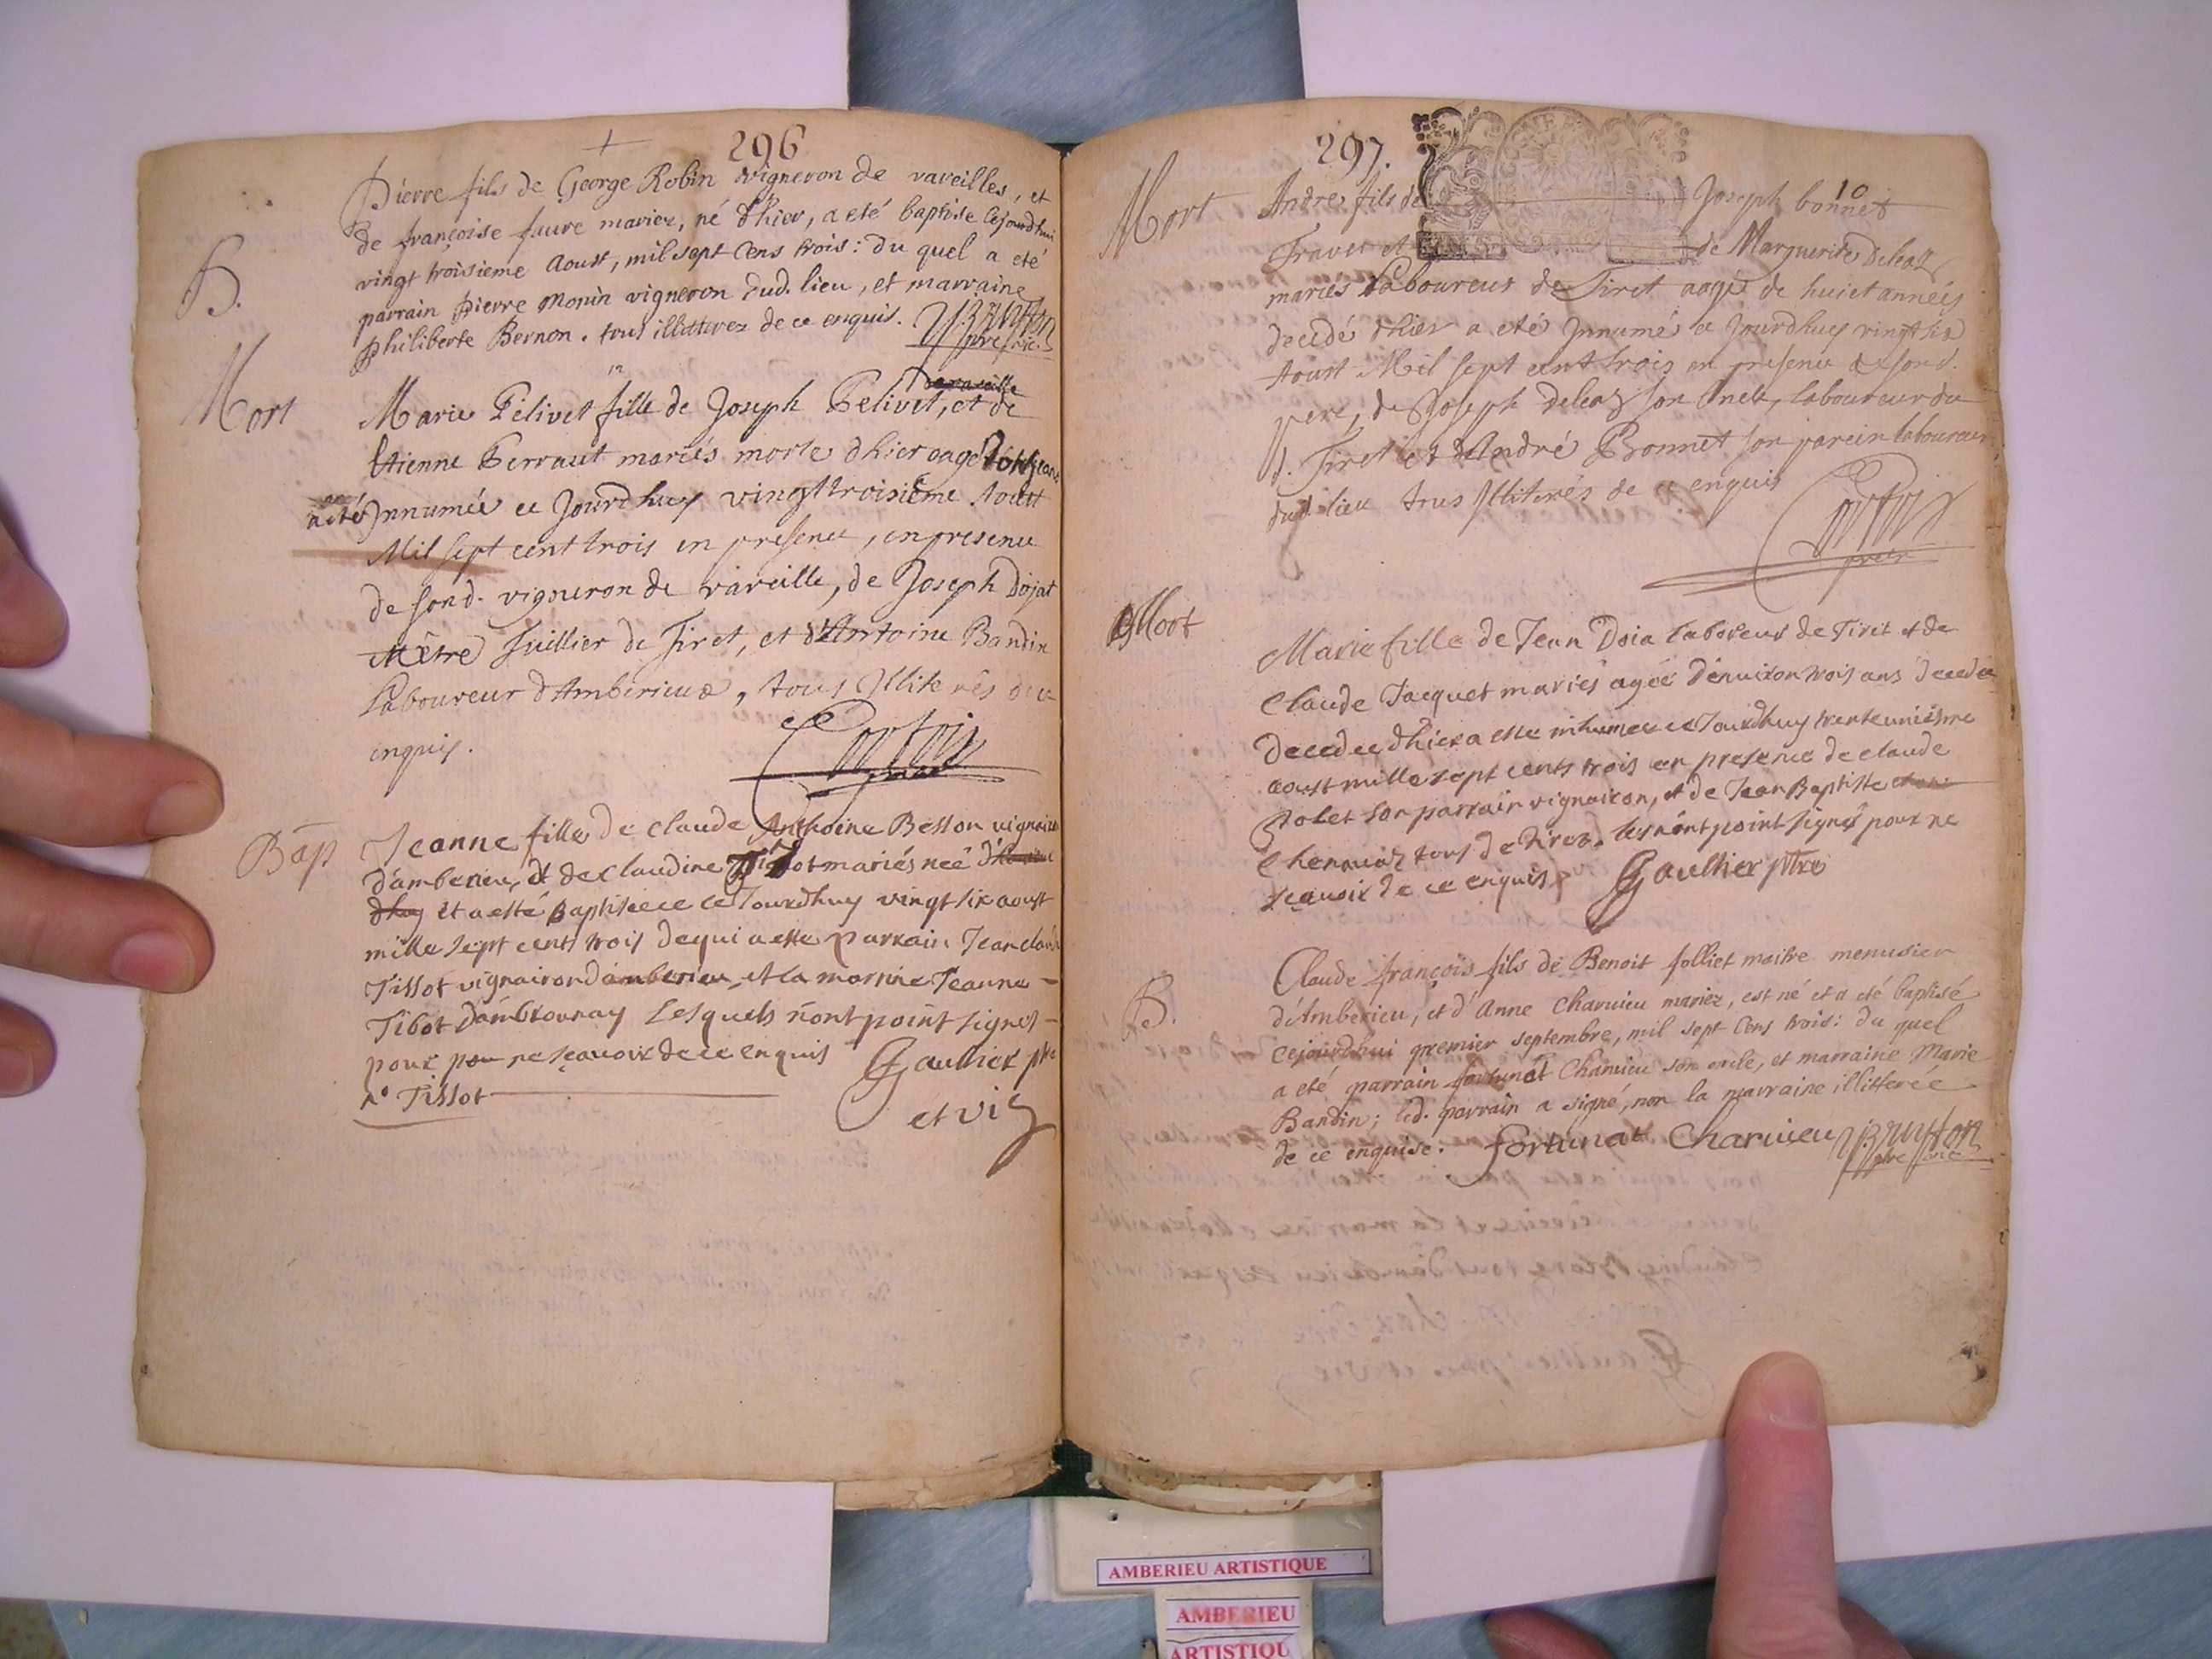 296
Pierre fils de George Robin vigneron de vareilles, et
de françoise faure mariez, né d'hier, a eté baptise cejourdhui
vingt troisieme Aoust, mil sept Cens trois: du quel a eté
B.
parrain Pierre Monin vigneron dud. lieu, et marraine
Philiberte Bernon. tous illitterez de ce enquis.
Mort
Marie Pelivet fille de Joseph Pelivet, et de
Etienne Perraut mariés morte d hier aagé
a eté Innumée ce Jourdhuy vingttroisiéme Aoust
Mil sept cent trois en presence, en presence
de sond. vigneron de vareille, de Joseph Dojat
Mètre Tuillier de Tiret, et d'Antoine Bandin
Laboureur d'Amberieux, tous Illiterés de ce
enquis.
Bap
Jeanne fille de claude Anthoine Besson vigneron
d'amberieu, et de Claudine mariés neé
et a esté Baptiseé ce Jourdhuy vingt six aoust
mille sept cents trois dequi a este parrain Jean claude
Tissot vignairon d'amberieu, et la marrine Jeanne
Tibot d'ambrounay Lesquels n'ont point signes
pour ne sçauoir de ce enquis Gaultier ptre
Tissot et vic
297.
10
Mort
Andres fils de Joseph bonnet
Traver et de Marguerite Deleaz
maries Laboureur de Tiret aagé de huict anneés
decedé d'hier a eté Jnnumé ce Jourdhuy vingt six
Aoust Mil sept cent trois en presence de sond.
pere, de Joseph Deleaz son oncle, laboureur du
d. Tiret et d'André Bonnet son parein laboureur
dud. lieu tous Illiterés de ce enquis
Mort
Marie fille de Jean Doia laboreur de Tiret et de
Claude Jacquet mariés ageé d'enuiron trois ans decedée
decedee d'hier a este inhumee ce Jourdhuy trente unième
aoust mille sept cents trois en presence de claude
son parrain vignairon, et de Jean Baptiste
tous de Tiret. lesq n'ont point signés pour ne
sçauoir de ce enquis Gaultier ptre
B.
Claude françois fils de Benoit folliet maitre menusier
d'Amberieu, et d'Anne Charuieu mariez, est né et a eté baptisé
cejourdhui premier septembre, mil sept Cens trois: du quel
a eté parrain fortunat Charuieu son oncle, et marraine Marie
Bandin; led. parrain a signé, non la marraine illitterée
de ce enquise. fortunat Charuieu
AMBERIEU ARTISTIQUE
AMBERIEU
ARTISTIQU